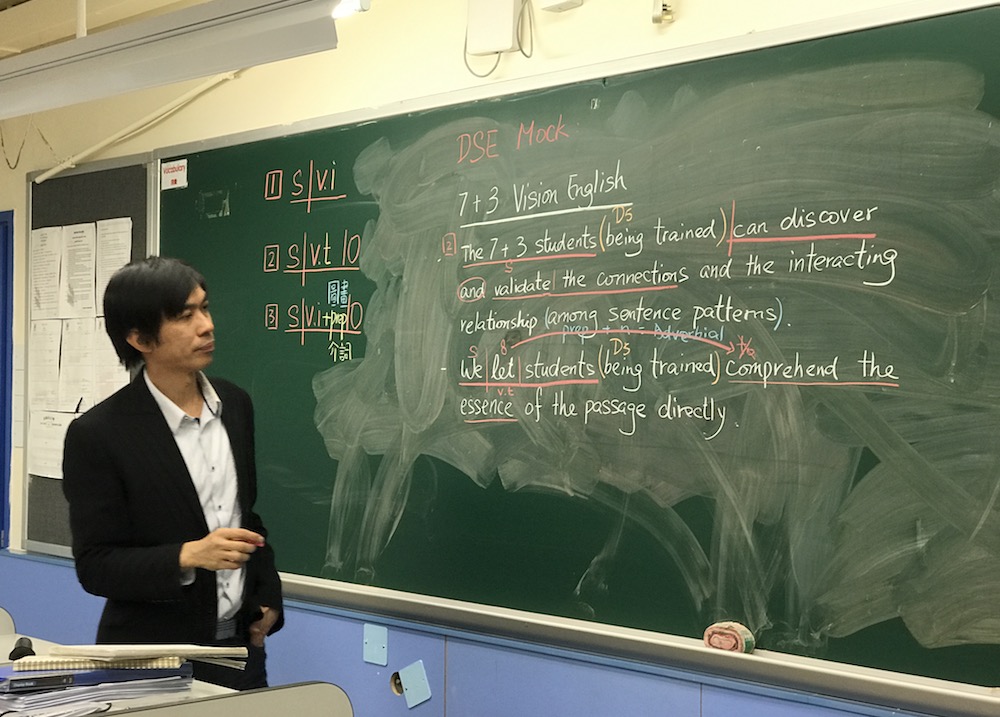 Vocabulary
DSE Mock
1 S|v.i
2 S|v.t|O
3 S|v.i+prep|O
介詞
7+3 Vision English
D5
2 The 7+3 students (being trained) can discover
S
and validate the connections and the interacting
relationship (among sentence patterns).
prep + n = Adverbial
S 8 D5
- We let students (being trained) comprehend the
v.t
essence of the passage directly.